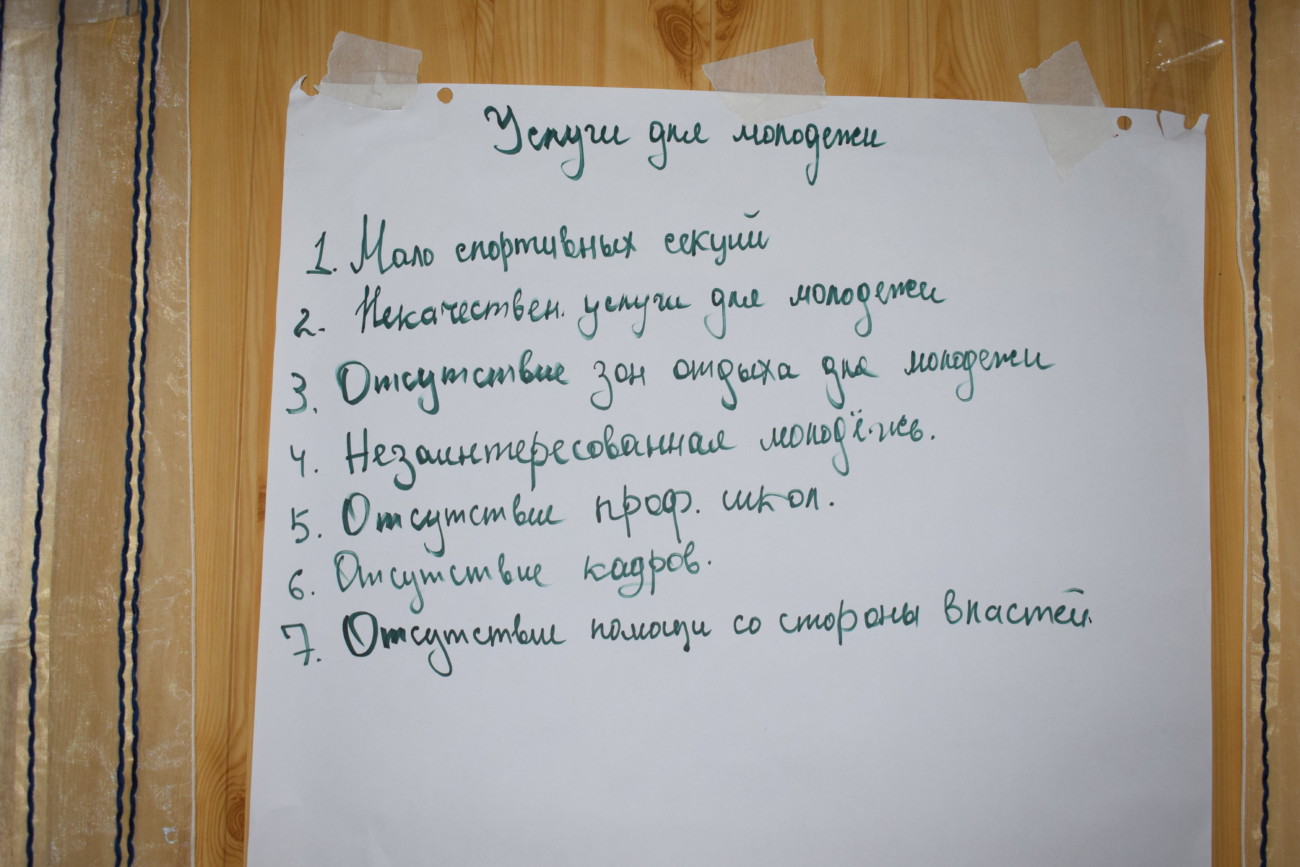 Услуги для молодежи
1. Мало спортивных секций
2. Некачествен. услуги для молодежи
3. Отсутствие зон отдыха для молодежи
4. Незаинтересованная молодёжь.
5. Отсутствие проф. школ.
6. Отсутствие кадров.
7. Отсутствие помощи со стороны властей.